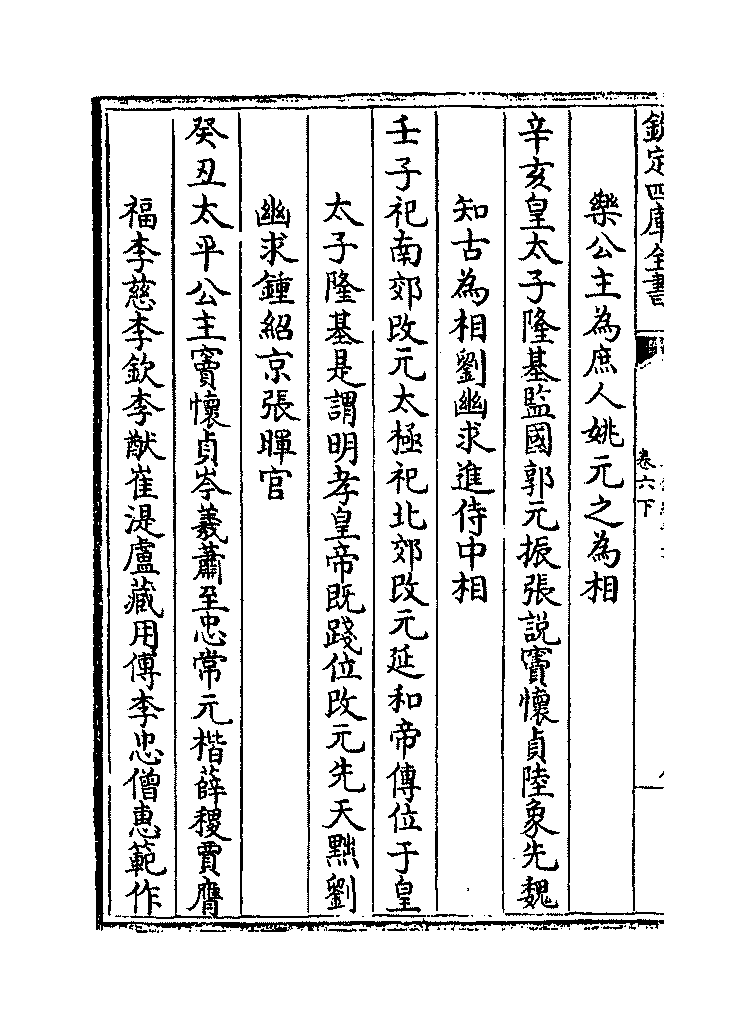 欽定四庫全書
卷六下
樂公主為庶人姚元之為相
辛亥皇太子隆基監國郭元振張說竇懷貞陸象先魏
知古為相劉幽求進侍中相
壬子祀南郊改元太極祀北郊改元延和帝傳位于皇
太子隆基是謂明孝皇帝既踐位改元先天黜劉
幽求鍾紹京張暐官
癸丑太平公主竇懷貞岑羲蕭至忠常元楷薛稷賈膺
福李慈李欽李猷崔湜盧藏用傅李忠僧惠範作